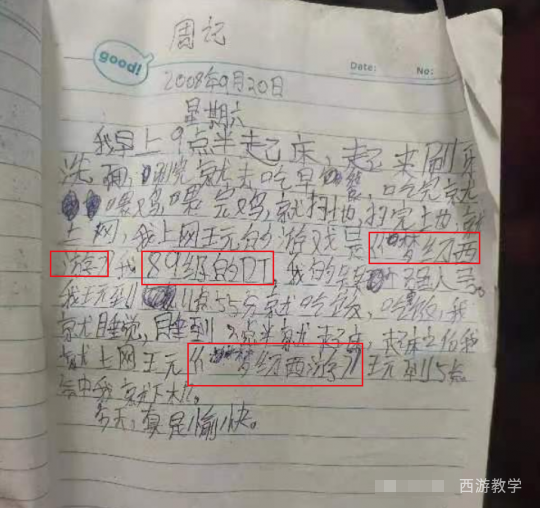 周记
good!
Date:
No:
2008年9月20日
星期六
我早上9点半起床，起来刷牙
洗面，刷完就去吃早餐，吃完就
喂鸡喂完鸡，就扫地，扫完地就
上网，我上网玩的游戏是《梦幻西
游》我89级的DT，我的是人号。
我玩到11点55分就吃饭，吃饭，我
就睡觉，睡到点半就起床，起床之后我
就上网玩《梦幻西游》玩到5点
钟我就下机。
今天，真是愉快。
西游教学